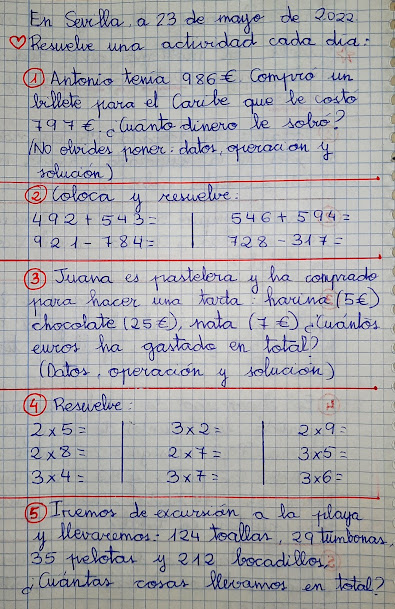 En Sevilla, a 23 de mayo de 2022
Resuelve una actividad cada día:
1 Antonio tenía 986€. Compró un
billete para el Caribe que le costó
797€. ¿Cuánto dinero le sobró?
(No olvides poner: datos, operación y
solución)
2 Coloca y resuelve:
492+543= 546+594=
921-784= 728-317=
3 Juana es pastelera y ha comprado
para hacer una tarta: harina (5€)
chocolate (25€), nata (7€) ¿Cuántos
euros ha gastado en total?
(Datos, operación y solución)
4 Resuelve:
2x5= 3x2= 2x9=
2x8= 2x7= 3x5=
3x4= 3x7= 3x6=
5 Iremos de excursión a la playa
y llevaremos: 124 toallas, 29 tumbonas,
35 pelotas y 212 bocadillos.
¿Cuántas cosas llevamos en total?